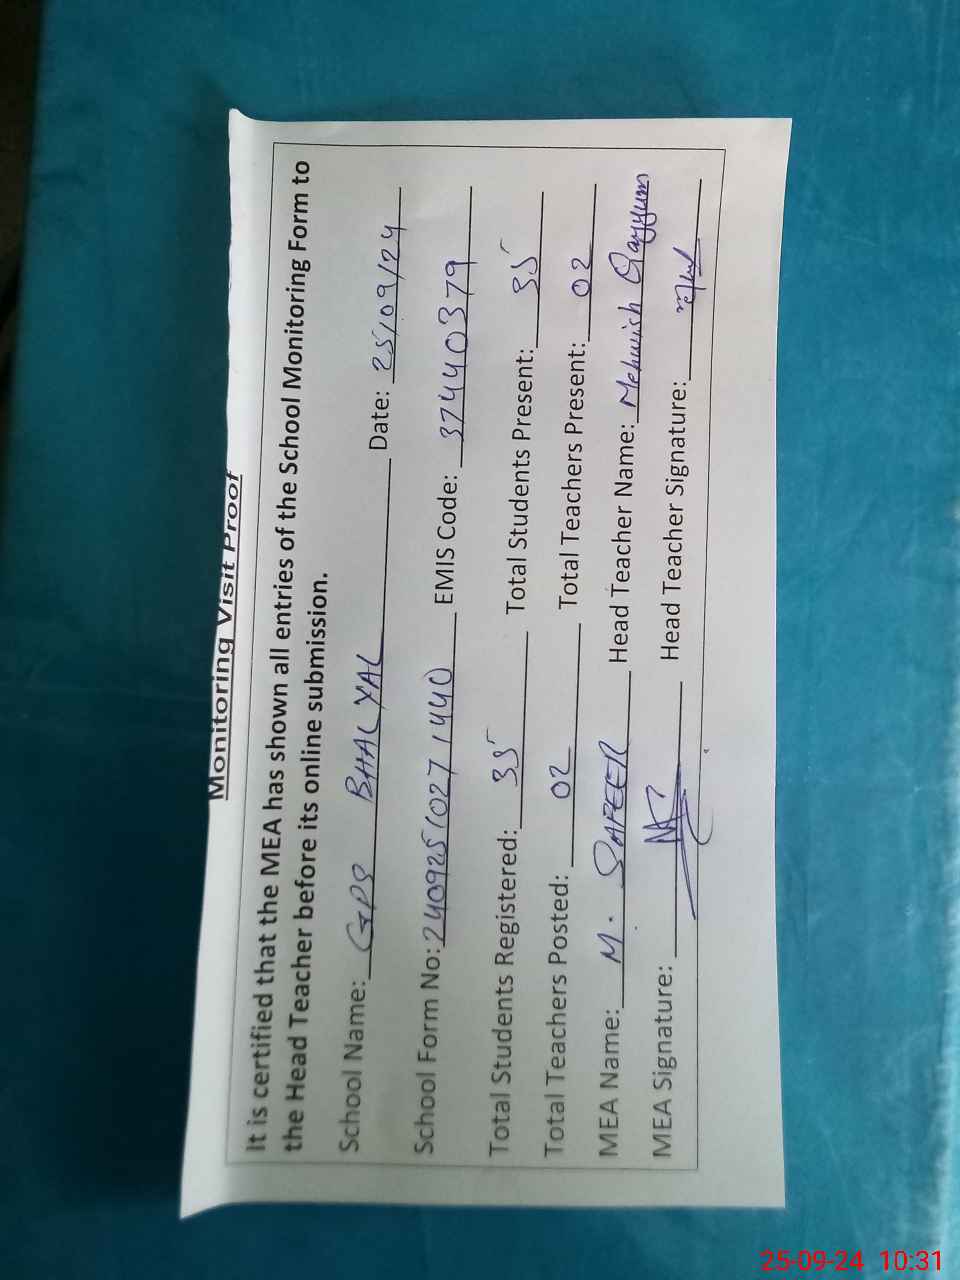 Monitoring Visit Proof
It is certified that the MEA has shown all entries of the School Monitoring Form to
the Head Teacher before its online submission.
School Name: GPS BHAL YAL Date: 25/09/24
School Form No: 2409251027 1440 EMIS Code: 37440379
Total Students Registered: 35 Total Students Present: 35
Total Teachers Posted: 02 Total Teachers Present: 02
MEA Name: M. SAFEER Head Teacher Name: Mehwish Qayyum
MEA Signature: Head Teacher Signature:
25-09-24 10:31